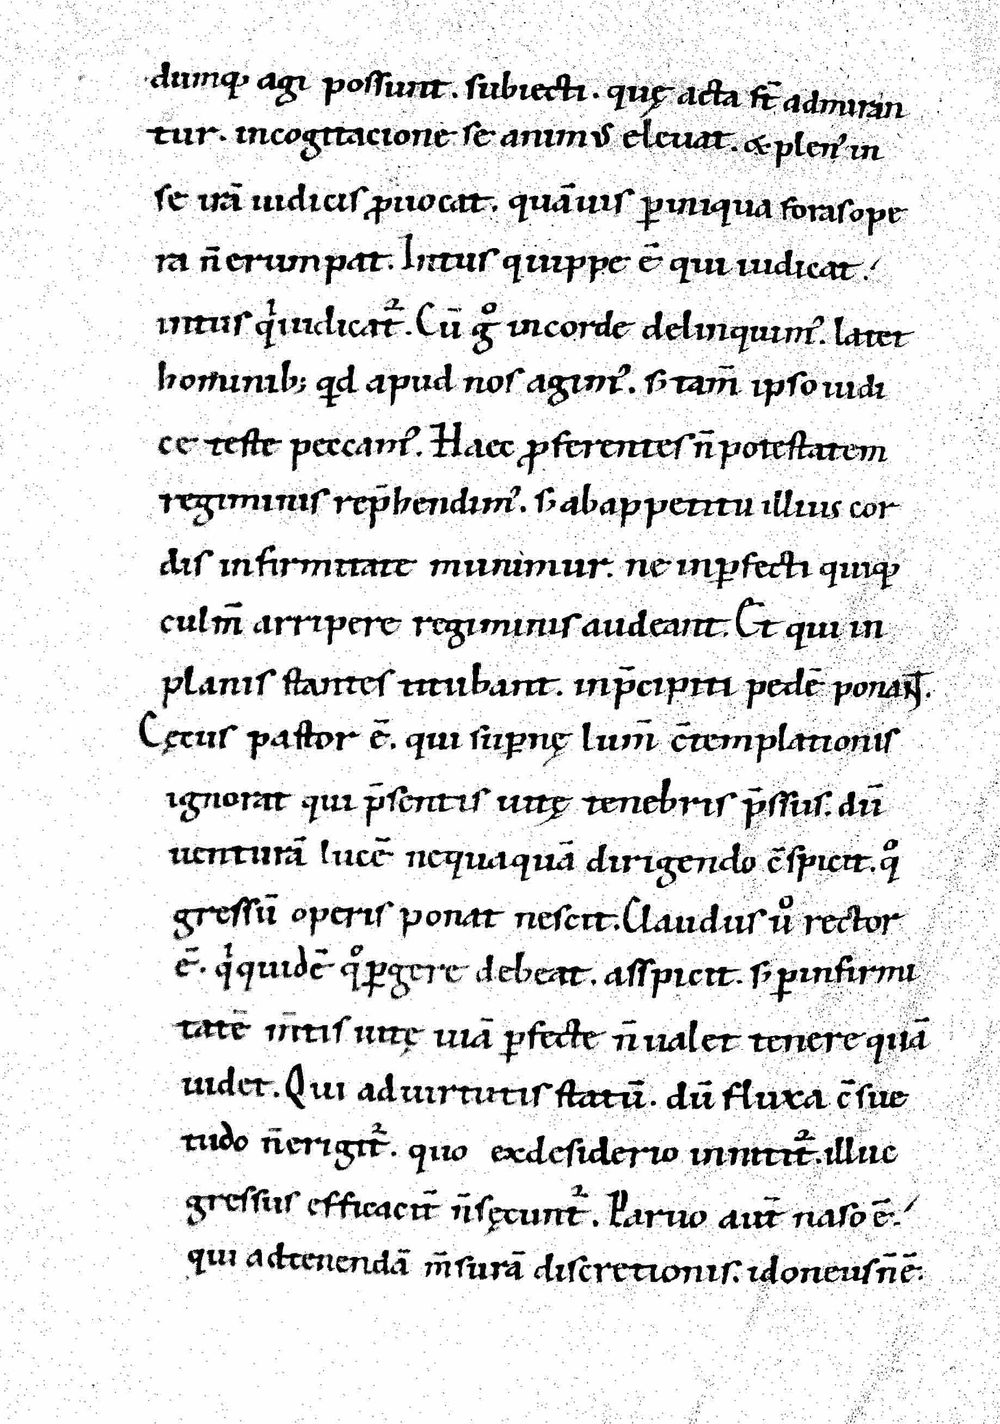 dumq; agi possunt. subiecti. quę acta st̄ admiran
tur. incogitacione se animus eleuat. & plen᾽ in
se irā iudicis ꝓuocat. quāuis ꝑiniqua forasope
ra n̄erumpat. Intus quippe ē qui iudicat.
intus qͥiudicat᷑. Cū gͦ incorde delinquim᾽. latet
hominib; qd apud nos agim᾽. s; tam̄ ipso iudi
ce teste peccam᾽. Haec ꝓferentes n̄potestatem
regiminis rep̄hendim᾽. s; abappetitu illius cor
dis infirmitate munimur. ne inꝑfecti quiq;
culm̄ arripere regiminis audeant. Et qui in
planis stantes titubant. inp̄cipiti pedē ponant.
Cęcus pastor ē. qui suꝑnę lum̄ c̄templationis
ignorat qui p̄sentis uitę tenebris p̄ssus. dū
uenturā lucē nequaquā dirigendo c̄spicit. qͦ
gressū operis ponat nescit. Claudus uͦ rector
ē. qͥquidē qͦꝑgere debeat. asspicit. s; ꝑinfirmi
tatē m̄tis uitę uiā ꝑfecte n̄ualet tenere quā
uidet. Qui aduirtutis statū. dū fluxa c̄sue
tudo n̄erigit᷑. quo exdesiderio innitit᷑. illuc
gressus efficacit̄ n̄sęcunt᷑. Paruo aut̄ naso ē.
qui adtenendā m̄surā discretionis. idoneusn̄ē.